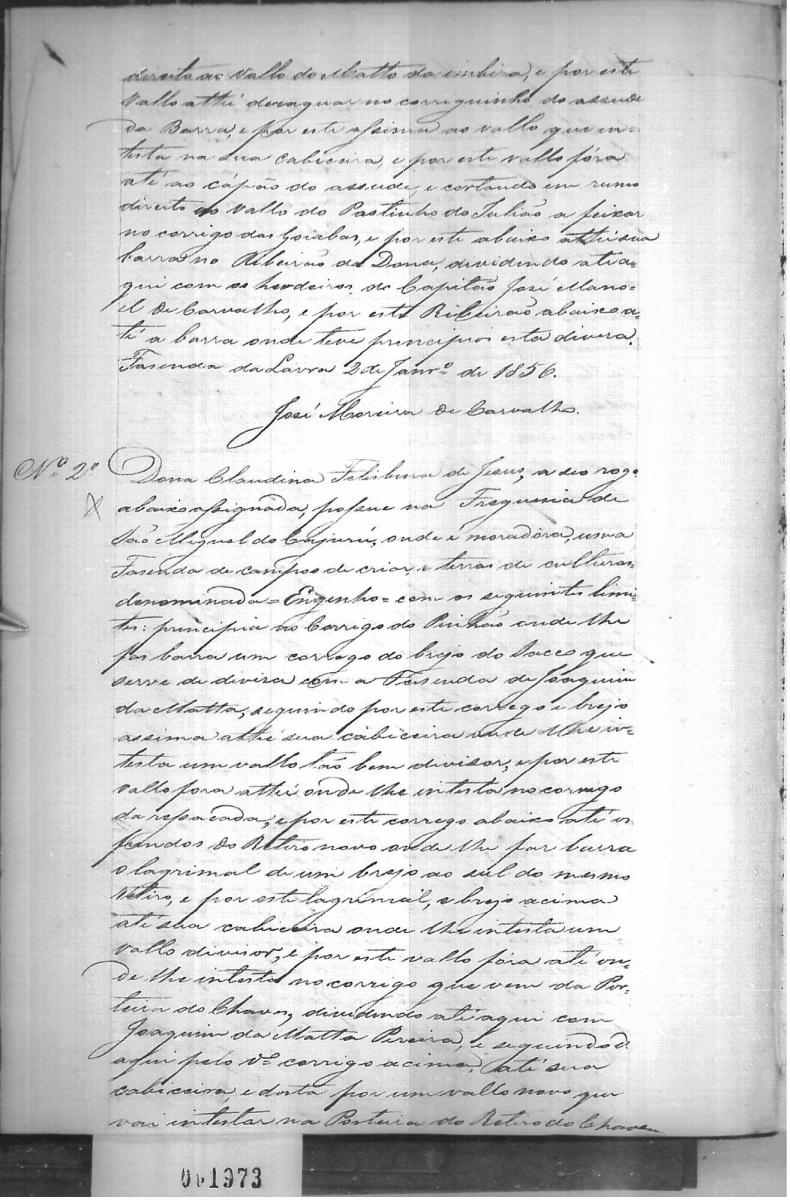 direito ao Vallo do Matto da imbira, e por este
Vallo athé desaguar no correguinho do assude
da Barra, e por este assima ao vallo que in-
testa na sua cabiceira, e por este vallo fóra
até ao cápão do assude, e cortando em rumo
direito ao Vallo do Pastinho do Julião a feixar
no corrigo das Goiabas, e por este abaixo athé sua
barra no Ribeirão da Dona, dividindo até a-
qui com os herdeiros do Capitão José Mano-
el de Carvalho, e por este Ribeirão abaixo a-
té a barra onde teve principios esta divisa.
Fasenda da Lavra 2 de Janrº de 1856.
José Moreira de Carvalho.
Nº 2º
Dona Claudina Felisbina de Jesus, a seo rogo
abaixo assignada, possue na Freguesia de
São Miguel do Cajurú, onde é moradôra, uma
Fasenda de campos de criar, e terras de culturas
denominada = Engenho = com os seguintes limi-
tes: principia no Corrego do Pinhão onde lhe
fas barra um corrego do brejo do Sacco que
serve de divisa com a Fasenda de Joaquim
da Matta, seguindo por este corrego e brejo
assima athé sua cabiceira onde lhe in-
testa um vallo tão bem divisor, e por este
vallo fora athé onde lhe intesta no corrego
da repacada, e por este corrego abaixo até os
fundos do Retiro novo onde lhe faz barra
o lagrimal de um brejo ao sul do mesmo
Retiro, e por este lagrimal, e brejo acima
até sua cabiceira onde lhe intesta um
vallo divisor, e por este vallo fóra até on-
de lhe intesta no corrigo que vem da Por-
teira do Chaves, dividindo até aqui com
Joaquim da Matta Pereira, e seguindo d'
aqui pelo dº corrigo acima, até sua
cabiceira, e dasta por um vallo novo que
vai intestar na Porteira do Retiro do Chaves
001973